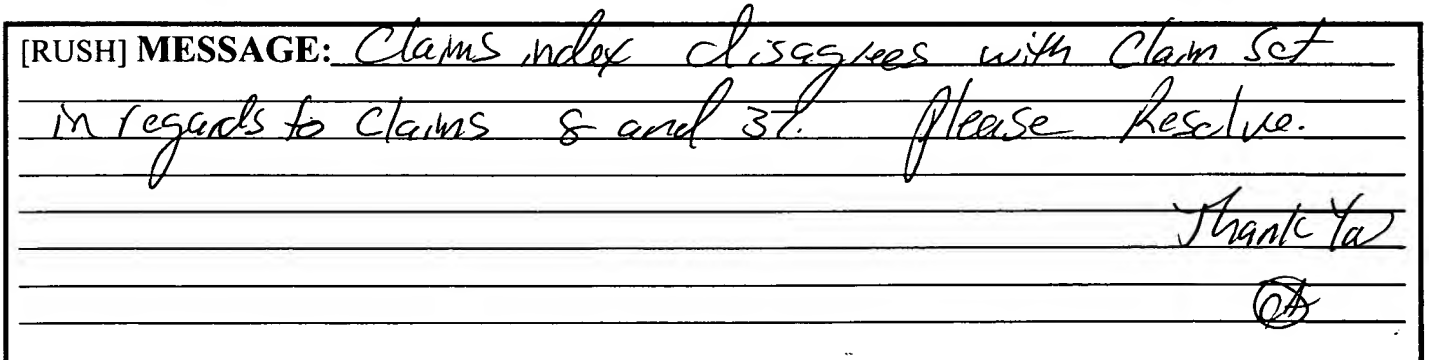 [RUSH] MESSAGE: Claims index disagrees with Claim Set
in regards to Claims 8 and 37. Please Resolve.
Thank You